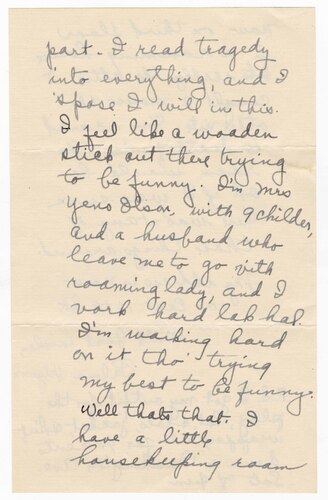 part. I read tragedy
into everything, and I
'spose I will in this.
I feel like a wooden
stick out there trying
to be funny. I'm Mrs
Yens Olson, with 9 childer,
and a husband who
leave me to go vith
roaming lady, and I
vork hard lak hal.
I'm working hard
on it tho' trying
my best to be funny.
Well thats that. I
have a little
housekeeping room